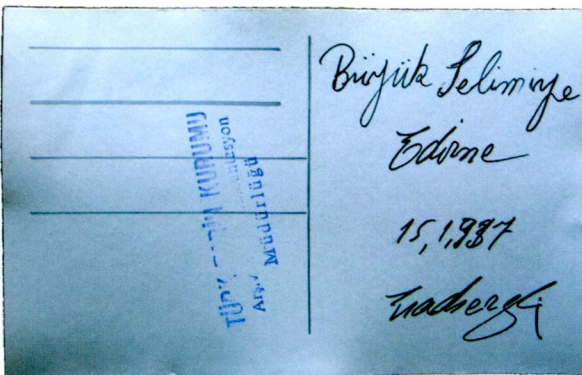 TÜRK TARİH KURUMU
Müdürlüğü
Büyük Selimiye
Edirne
15,1,937